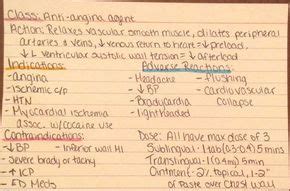 Class: Anti-angina agent
Action: Relaxes vascular smooth muscle, dilates peripheral
arteries & veins, ↓ venous return to heart = ↓ preload,
↓ L ventricular systolic wall tension = ↓ afterload
Indications:
-angina
-Ischemic c/p
-HTN
-Myocardial ischemia
assoc. w/cocaine use
Adverse Reactions:
-Headache
-↓BP
-Bradycardia
-lightheaded
-flushing
-Cardiovascular
Collapse
Contraindications:
-↓BP
-Inferior wall MI
-Severe brady or tachy
-↑ICP
-ED Meds
Dose: All have max dose of 3
Sublingual - 1 tab (0.3-0.4) 5 mins
Translingual - (0.4mg) 5 min
Ointment - (2%) topical, 1-2"
of paste over chest wall